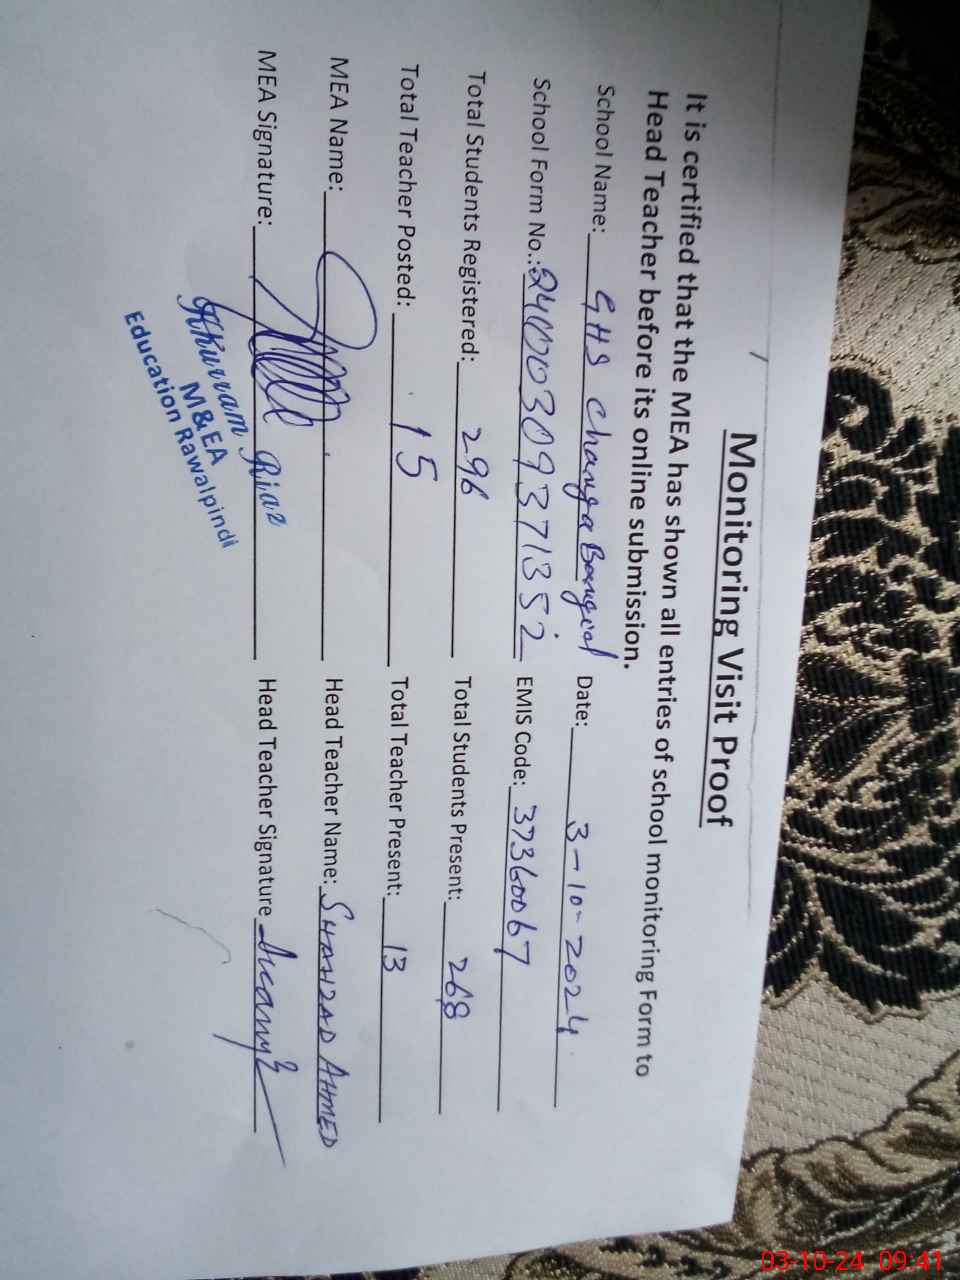 Monitoring Visit Proof
It is certified that the MEA has shown all entries of school monitoring Form to
Head Teacher before its online submission.
School Name: GHS Changa Bangial Date: 3-10-2024
School Form No.: 24000309371352 EMIS Code: 37360067
Total Students Registered: 296 Total Students Present: 268
Total Teacher Posted: 15 Total Teacher Present: 13
MEA Name: Head Teacher Name: SHAHZAD AHMED
MEA Signature: Head Teacher Signature
Khurram Riaz
M&EA
Education Rawalpindi
03-10-24 09:41